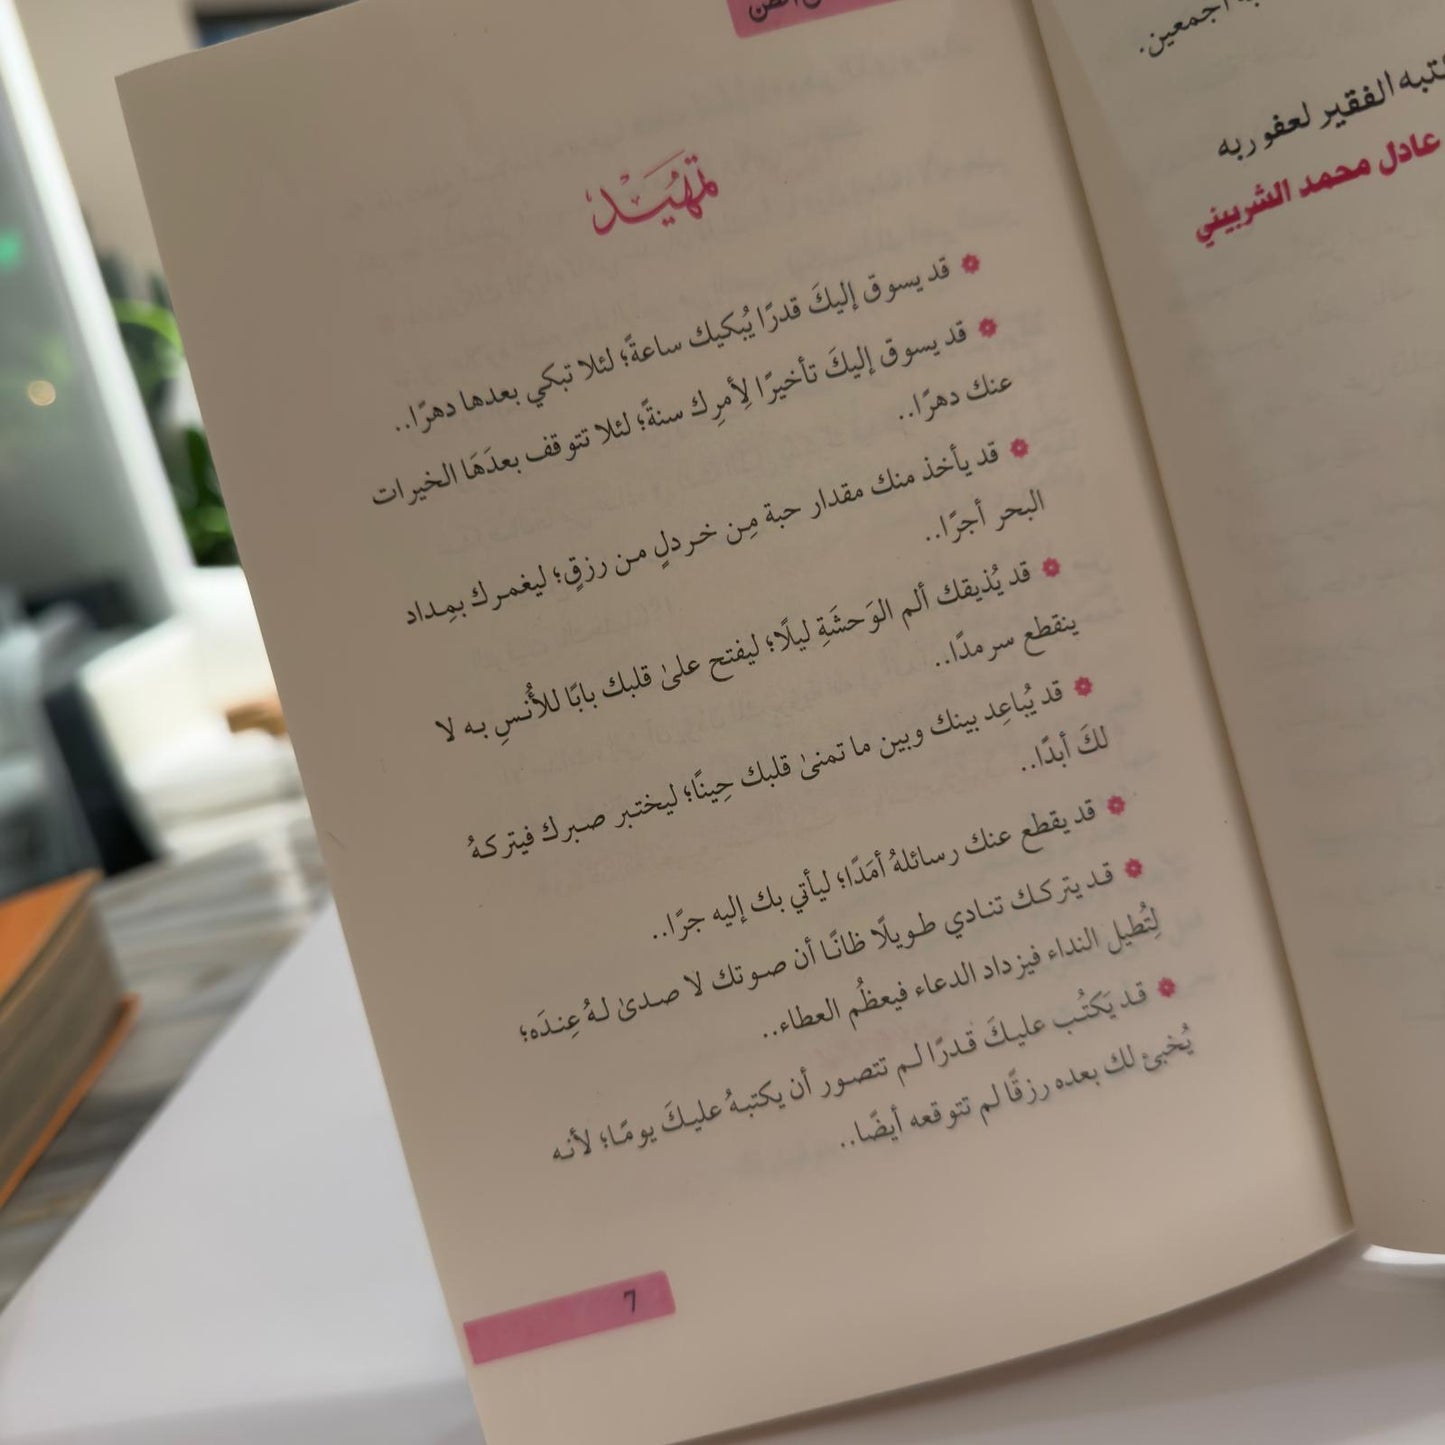 أجمعين.
الفقير لعفو ربه
عادل محمد الشربيني
تمهيد
قد يسوق إليكَ قدرًا يُبكيك ساعةً؛ لئلا تبكي بعدها دهرًا..
قد يسوق إليكَ تأخيرًا لِأمرِك سنةً؛ لئلا تتوقف بعدَهَا الخيرات
عنك دهرًا..
قد يأخذ منك مقدار حبة مِن خردلٍ من رزقٍ؛ ليغمرك بمِداد
البحر أجرًا..
قد يُذيقك ألم الوَحشَةِ ليلًا؛ ليفتح علىٰ قلبك بابًا للأُنسِ به لا
ينقطع سرمدًا..
قد يُباعِد بينك وبين ما تمنىٰ قلبك حِينًا؛ ليختبر صبرك فيتركهُ
لكَ أبدًا..
قد يقطع عنك رسائلهُ أمَدًا؛ ليأتي بك إليه جرًا..
قد يتركك تنادي طويلًا ظانًا أن صوتك لا صدىٰ لهُ عِندَه؛
لِتُطيل النداء فيزداد الدعاء فيعظُم العطاء..
قد يَكتُب عليكَ قدرًا لم تتصور أن يكتبهُ عليكَ يومًا؛ لأنه
يُخبئ لك بعده رزقًا لم تتوقعه أيضًا..
7